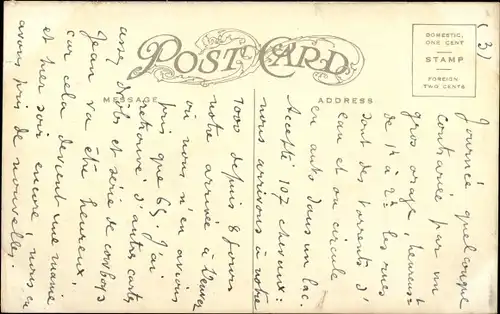 (3)
POST CARD
MESSAGE
ADDRESS
DOMESTIC,
ONE CENT
STAMP
FOREIGN
TWO CENTS
Journée quelconque
contrariée par un
gros orage, heureust
de 1h à 2h: les rues
sont des torrents d'
eau et on circule
en auto dans un lac.
Accepté 107 chevaux:
nous arrivons à notre
1000 depuis 8 jours
notre arrivée à Denver
où nous n'en avions
pris que 65. J'ai
retrouvé d'autres cartes
assez drôles et série de cowboys
Jean va être heureux,
car cela devient une manie
et hier soir encore, nous en
avons pris de nouvelles.